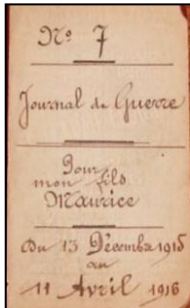 Nº 7
Journal de Guerre
Pour
mon fils
Maurice
Du 13 Décembre 1915
au
11 Avril 1916